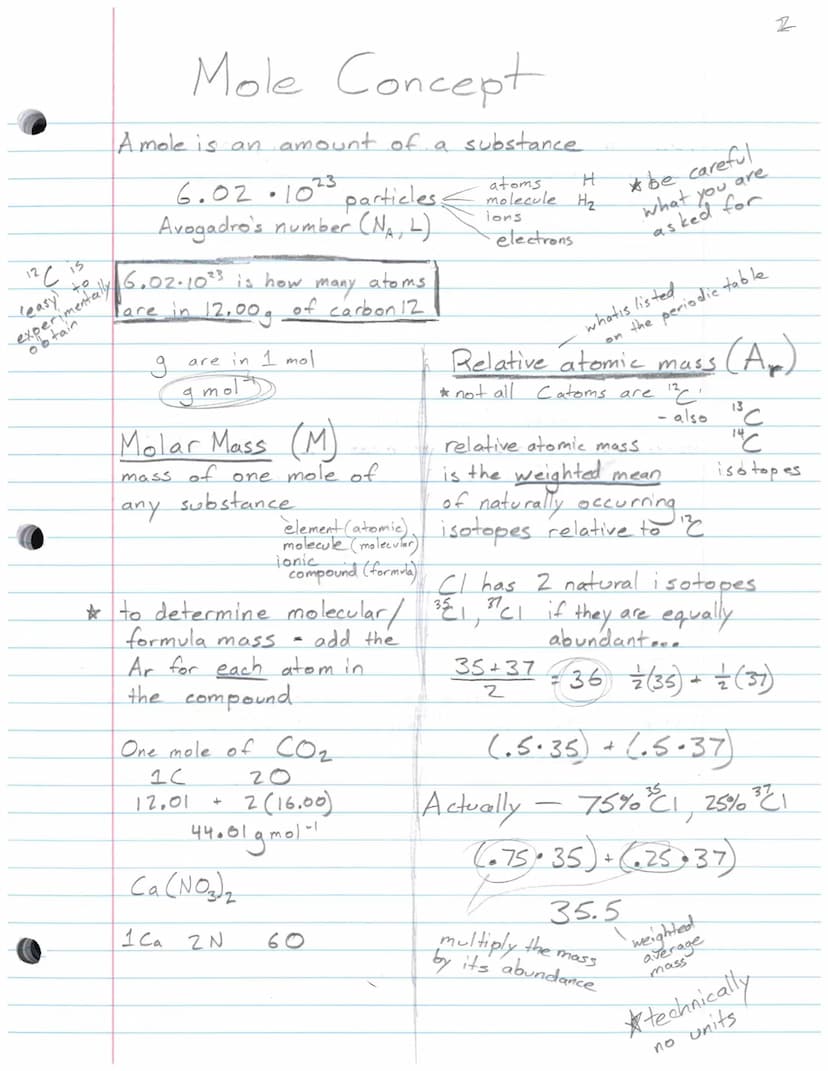 2
Mole Concept
A mole is an amount of a substance
6.02 · 10²³ particles
atoms H
molecule H₂
ions
electrons
Avogadro's number (N_A, L)
* be careful
what you are
asked for
¹²C is
'easy' to
experimentally
obtain
6.02·10²³ is how many atoms
are in 12.00g of carbon 12
g are in 1 mol
g mol⁻¹
Molar Mass (M)
mass of one mole of
any substance
element (atomic)
molecule (molecular)
ionic
compound (formula)
* to determine molecular/
formula mass - add the
Ar for each atom in
the compound
One mole of CO₂
1C 2O
12.01 + 2(16.00)
44.01 g mol⁻¹
Ca(NO₃)₂
1Ca 2N 6O
what is listed
on the periodic table
Relative atomic mass (Aᵣ)
* not all C atoms are ¹²C
- also ¹³C
¹⁴C
isotopes
relative atomic mass
is the weighted mean
of naturally occurring
isotopes relative to ¹²C
Cl has 2 natural isotopes
³⁵Cl, ³⁷Cl if they are equally
abundant...
35+37/2 = 36 ½(35) + ½(37)
(.5·35) + (.5·37)
Actually — 75% ³⁵Cl, 25% ³⁷Cl
(.75·35) + (.25·37)
35.5
weighted
average
mass
multiply the mass
by its abundance
* technically
no units